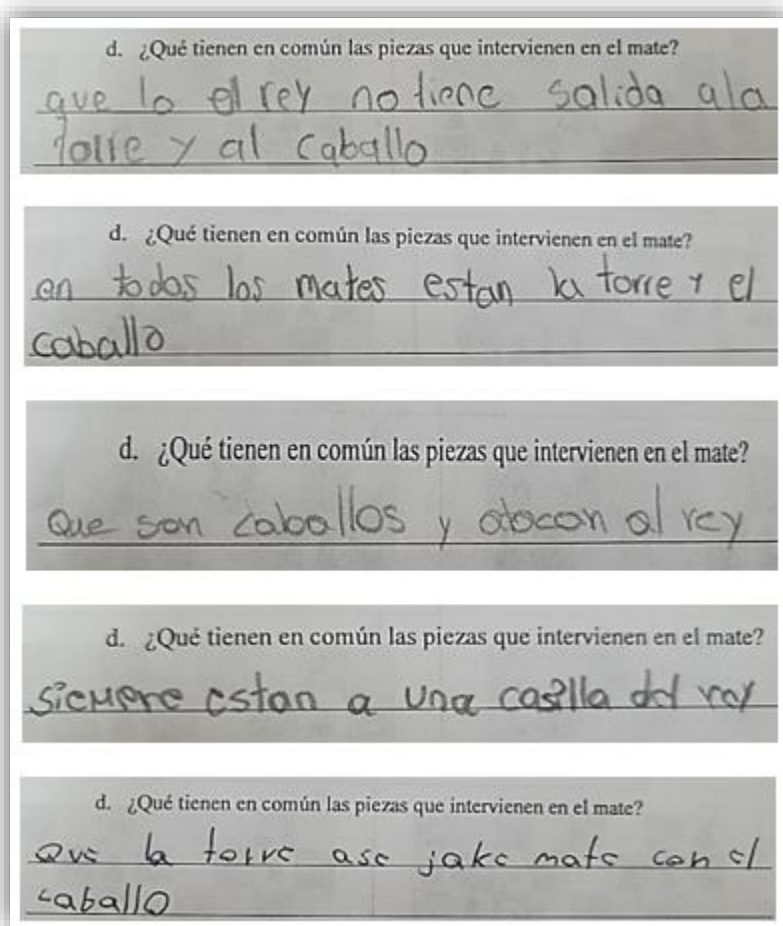 d. ¿Qué tienen en común las piezas que intervienen en el mate?
que lo el rey no tiene salida ala
torre y al caballo
d. ¿Qué tienen en común las piezas que intervienen en el mate?
en todos los mates estan la torre y el
caballo
d. ¿Qué tienen en común las piezas que intervienen en el mate?
Que son caballos y atacan al rey
d. ¿Qué tienen en común las piezas que intervienen en el mate?
siempre estan a una casilla del rey
d. ¿Qué tienen en común las piezas que intervienen en el mate?
Que la torre ase jake mate con el
caballo